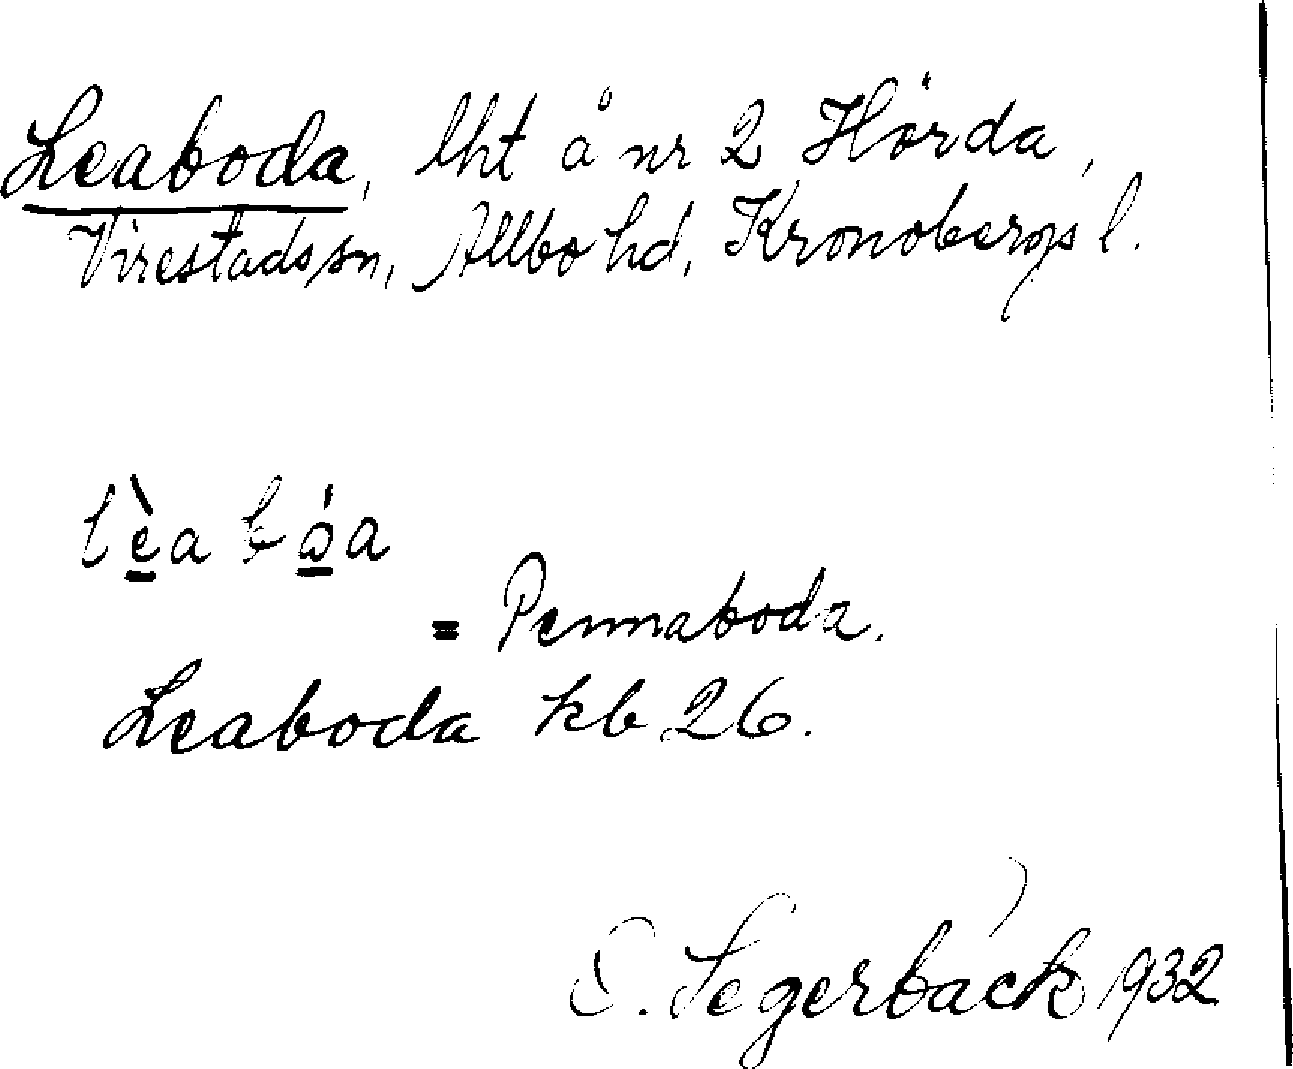 Leaboda, lht å nr 2 Hörda,
Virestads sn, Allbo hd, Kronobergs l.
lèa bóa
= Pennaboda.
Leaboda kb 26.
Segerbäck 1932